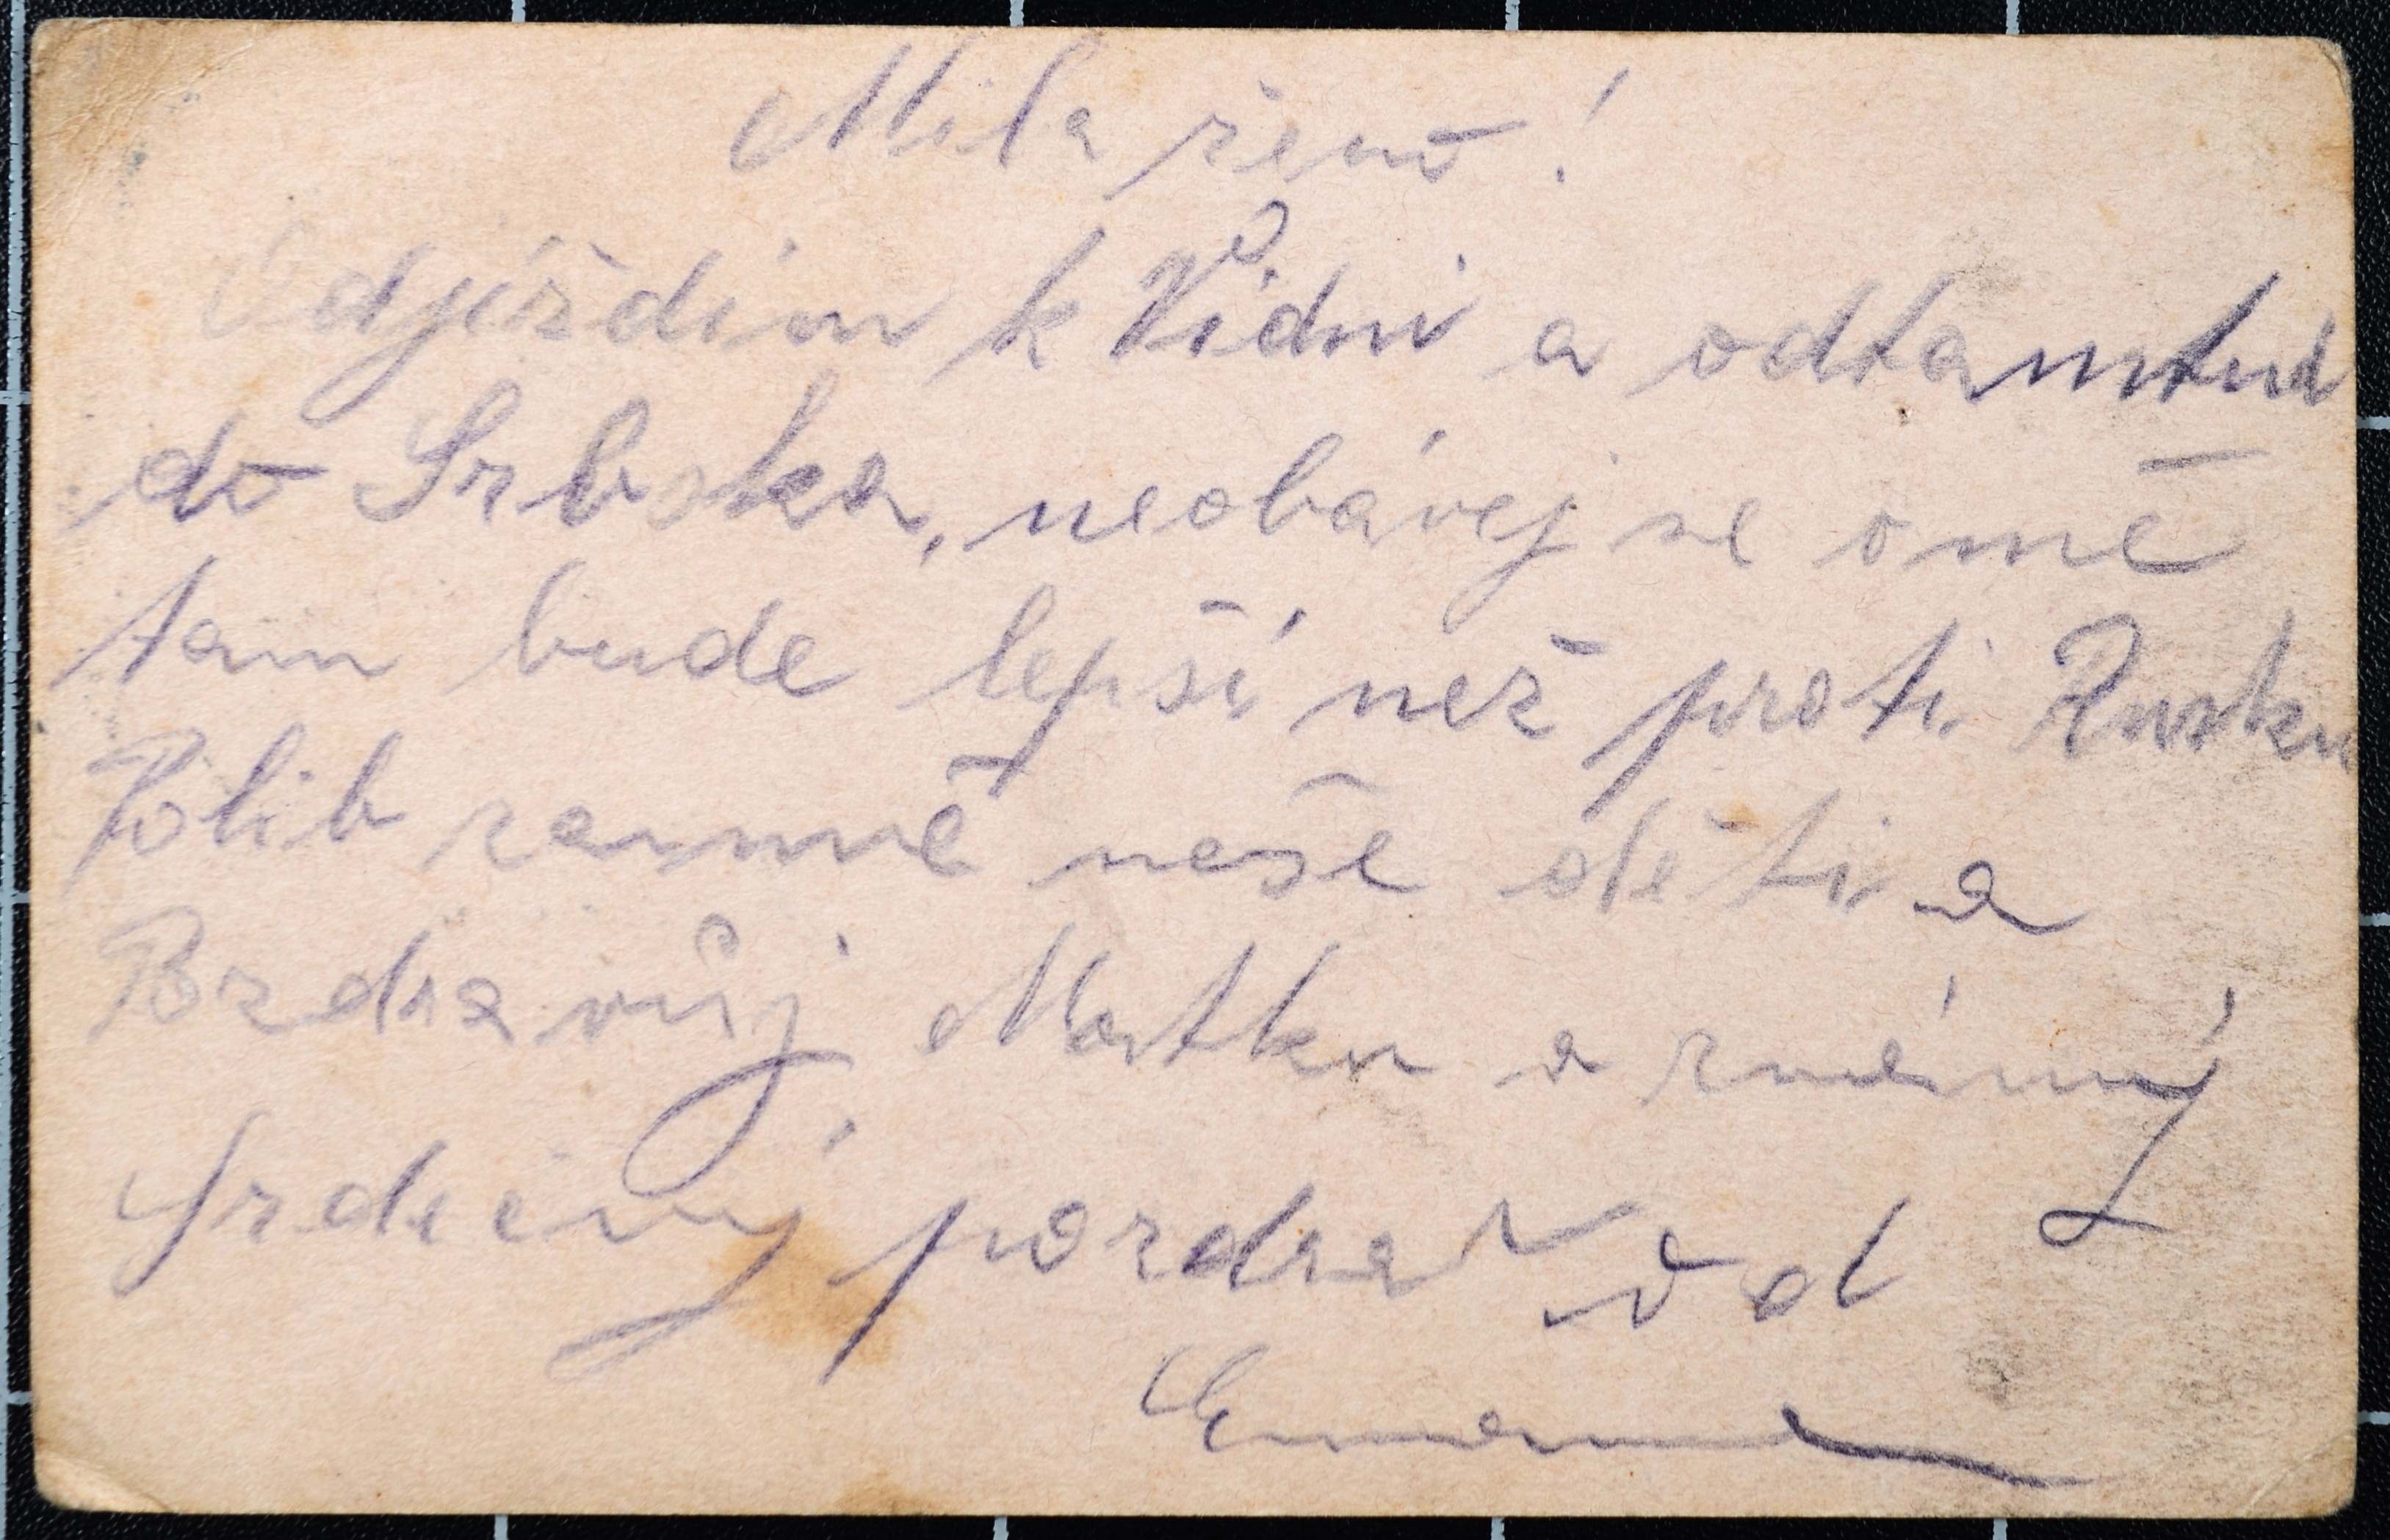 Mila ženo!
Odjíždím k Vídni a odtamtud
do Srbska, neobávej se omě
tam bude lepší než proti Rusku
Polib zamně naše děti a
Pozdravůj Matku a známý
Srdečný pozdrav od
Emanuel